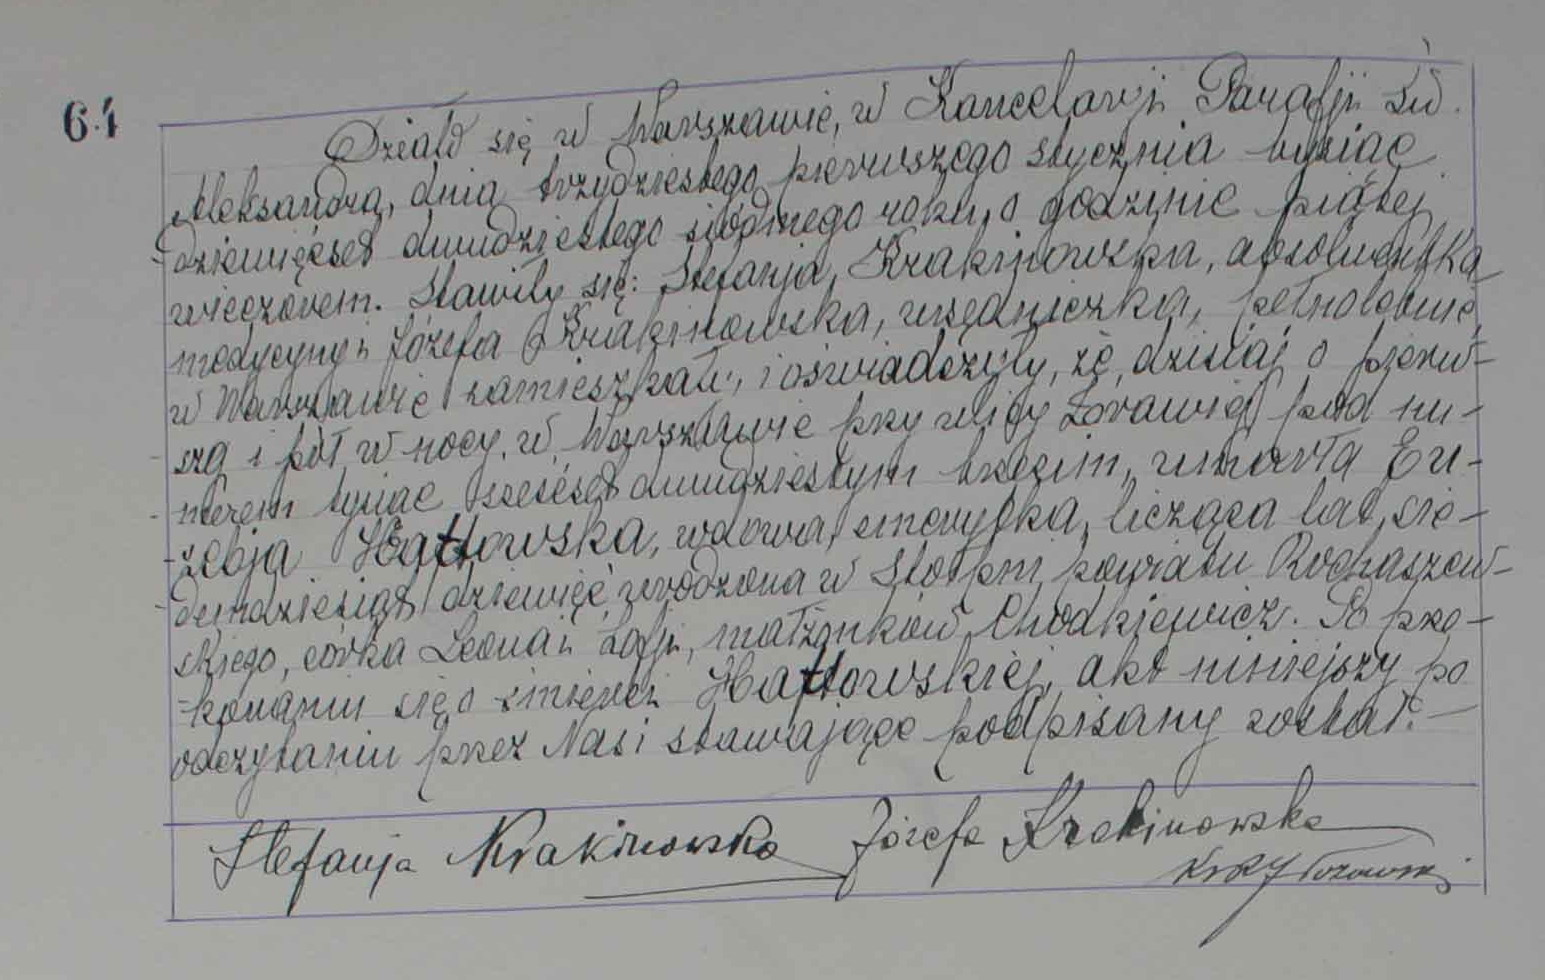 64
Działo się w Warszawie, w Kancelarji Parafji Św.
Aleksandra, dnia trzydziestego pierwszego stycznia tysiąc
dziewięćset dwudziestego siódmego roku, o godzinie piątej
wieczorem. Stawiły się: Stefanja Krakinowska, absolwentka
medycyny i Józefa Krakinowska, urzędniczka, pełnoletnie,
w Warszawie zamieszkałe, i oświadczyły, że, dzisiaj o pierw-
szą i pół w nocy, w Warszawie przy ulicy Żórawiej pod nu-
merem tysiąc sześćset dwudziestym trzecim, umarła Eu-
zebja Hattowska, wdowa, emerytka, licząca lat, sie-
demdziesiąt dziewięć, urodzona w powiatu
skiego, córka Leona i Zofji, małżonków Chodkiewicz. Po prze-
konaniu się o śmierci Hattowskiej, akt niniejszy po
odczytaniu przez Nas i stawające podpisany został. —
Stefanja Krakinowska Józefa Krakinowska